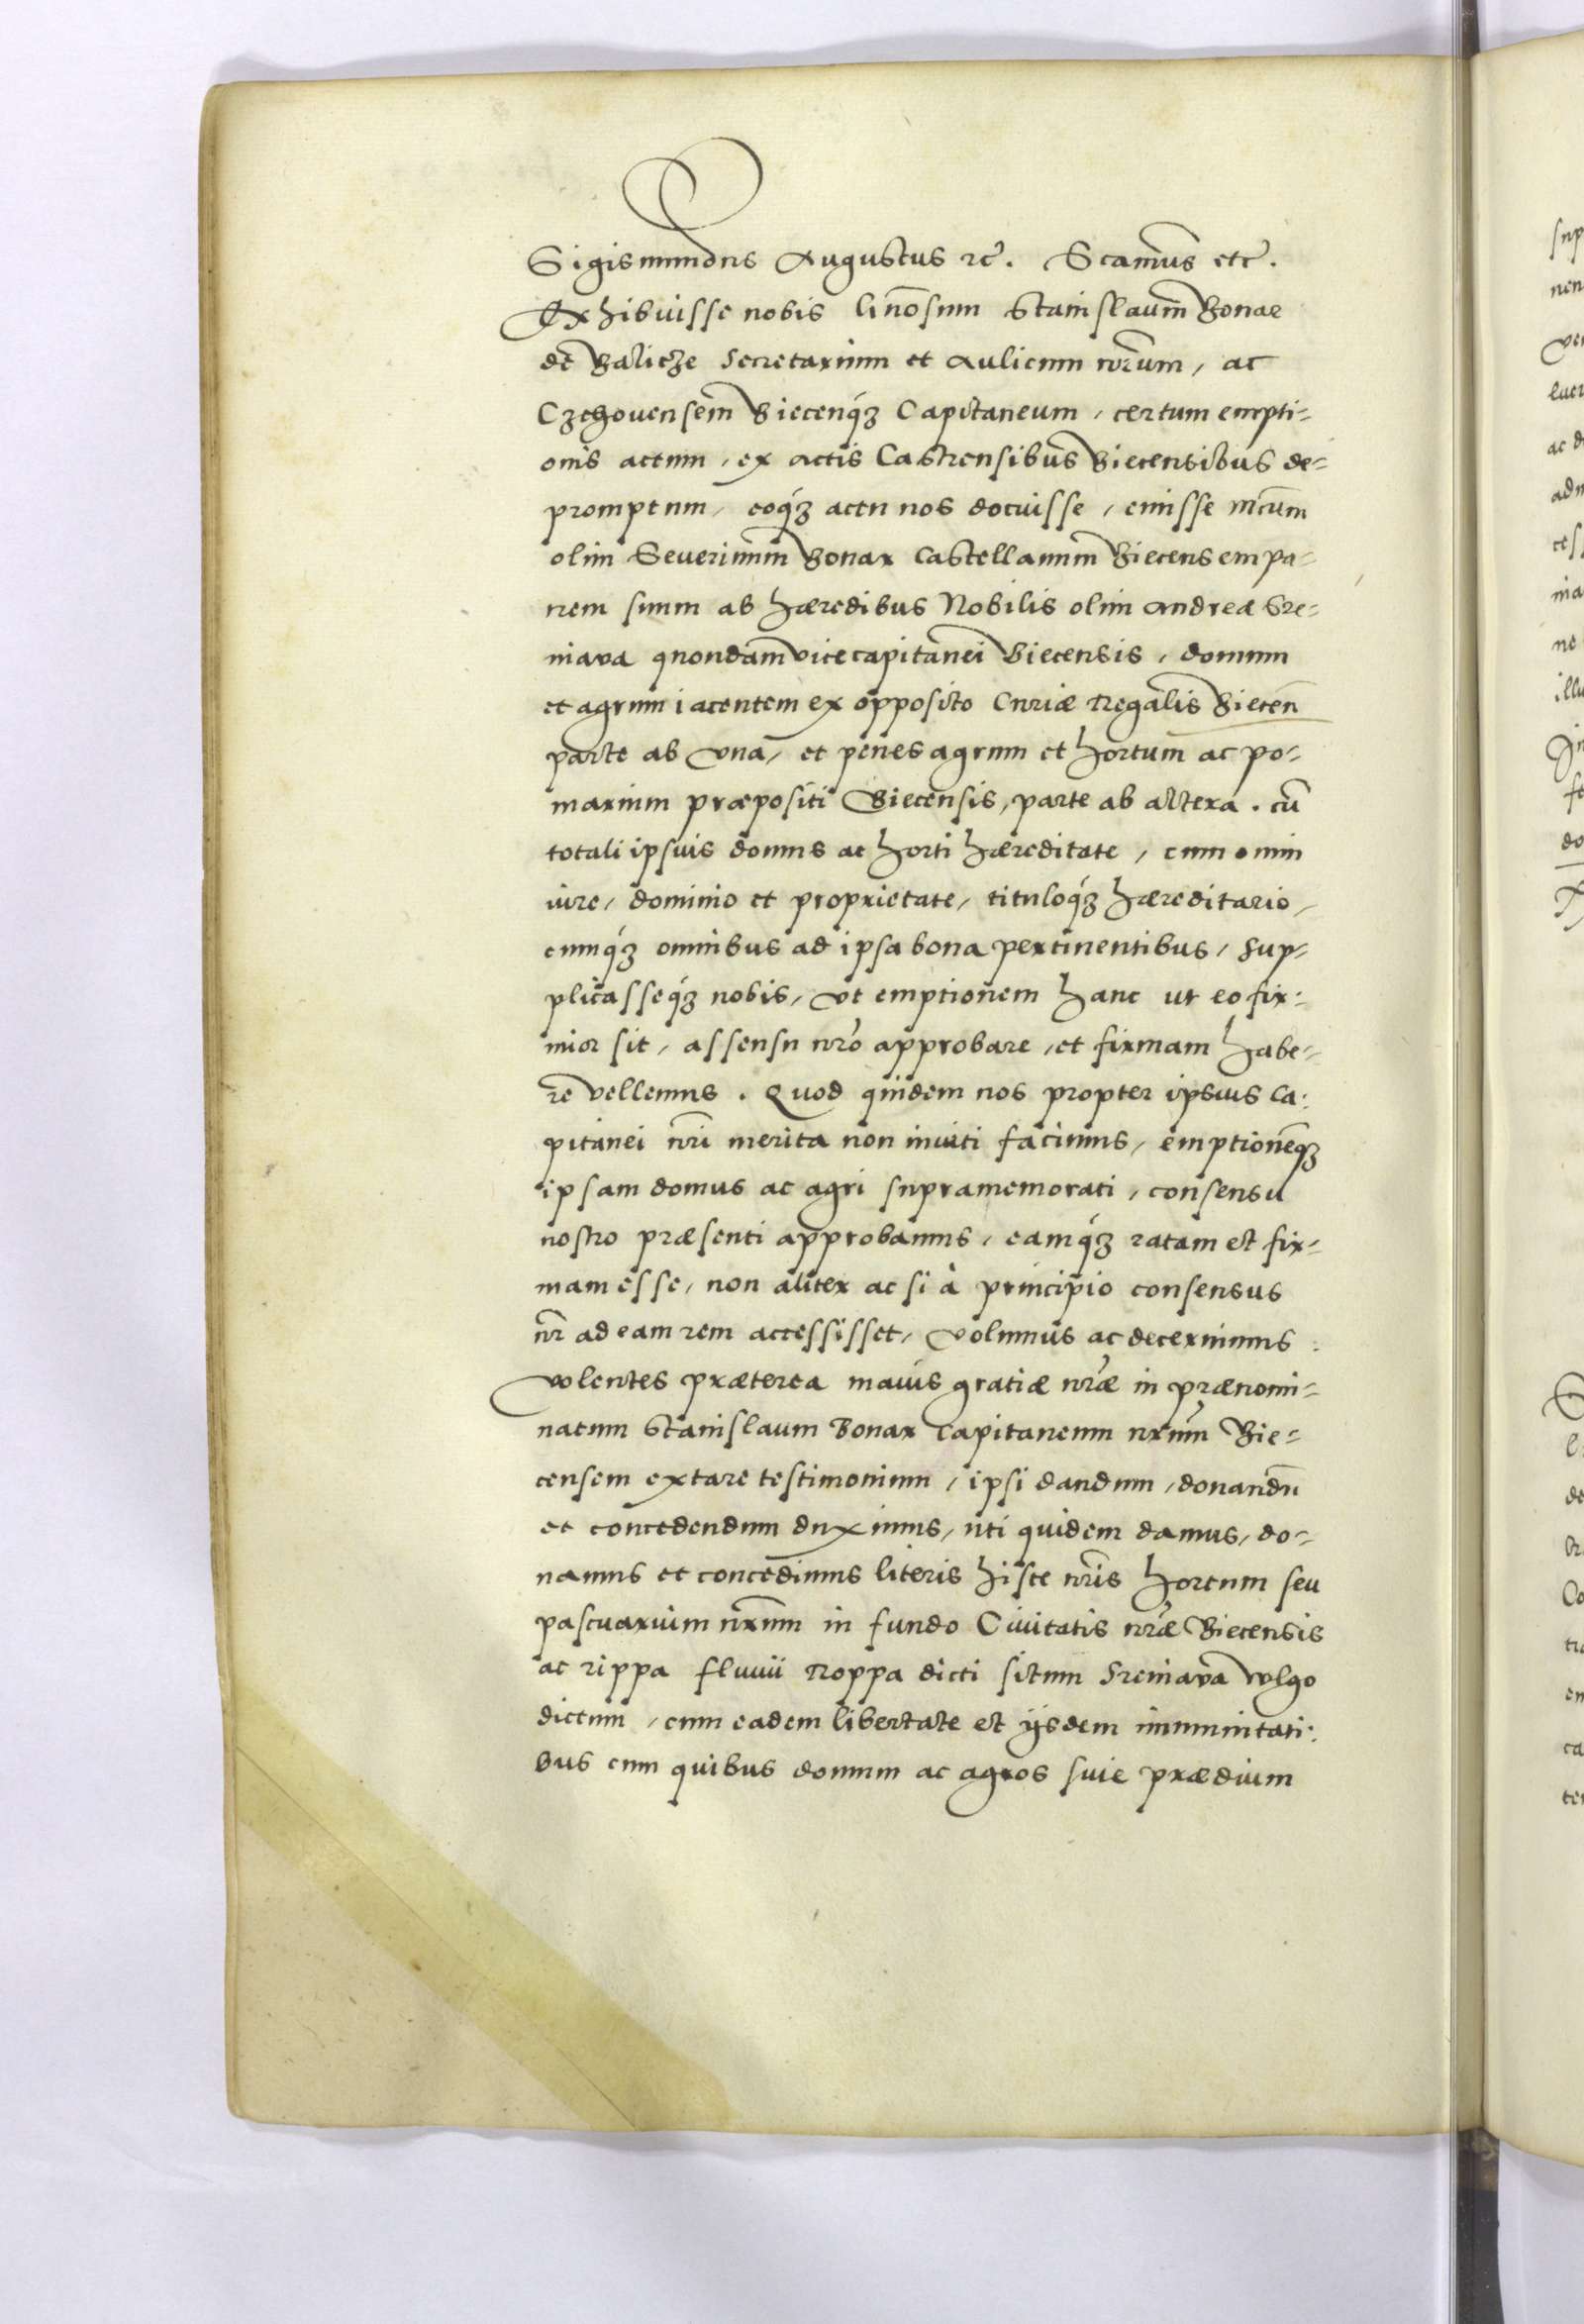 Sigismundus Augustus rc̃. Scamus̃ etc̃.
Exhibuisse nobis Gñosum Stanislaum Bonar
de Balicze Secretarium et Aulicum nr̃um, ac
Czchouensem Biecenq́ʒ Capitaneum, certum empti=
onis actum, ex actis Castrensibus Biecensibus de=
promptum, eoq́ʒ actu nos docuisse, emisse Mc̃um
olim Seuerinum Bonar Castellanum Biecensem pa=
trem suum ab hæredibus Nobilis olim Andreæ Sre=
niawa quondam vicecapitanei Biecensis, domum
et agrum iacentem ex opposito Curiæ Regalis Biecen̄
parte ab vna, et penes agrum et hortum ac po=
marium præpositi Biecensis, parte ab altera. cũ
totali ipsius domus ac horti hæreditate, cum omni
iure, dominio et proprietate, tituloq́ʒ hæreditario,
cumq́ʒ omnibus ad ipsa bona pertinentibus, sup=
plicasseq́ʒ nobis, vt emptionem hanc ut eo fir:
mior sit, assensu nr̃o approbare, et firmam habe=
re vellemus. Quod quidem nos propter ipsius Ca:
pitanei nr̃i merita non inuiti facimus, emptionemq́ʒ
ipsam domus ac agri supramemorati, consensu
nostro præsenti approbamus, eamq́ʒ ratam et fir=
mam esse, non aliter ac si à principio consensus
nr̃ ad eam rem accessisset, volumus ac decernimus.
volentes præterea maius gratiæ nr̃æ in prænomi=
natum Stanislaum Bonar Capitaneum nr̃um Bie=
censem extare testimonium, ipsi dandum, donandũ
et concedendum duximus, uti quidem damus, do=
namus et concedimus literis hisce nr̃is hortum seu
pascuarium nr̃um in fundo Ciuitatis nr̃æ Biecensis
ac rippa fluuii Roppa dicti situm Sreniawa vulgo
dictum, cum eadem libertate et ijsdem immunitati:
bus cum quibus domum ac agros siue prædium